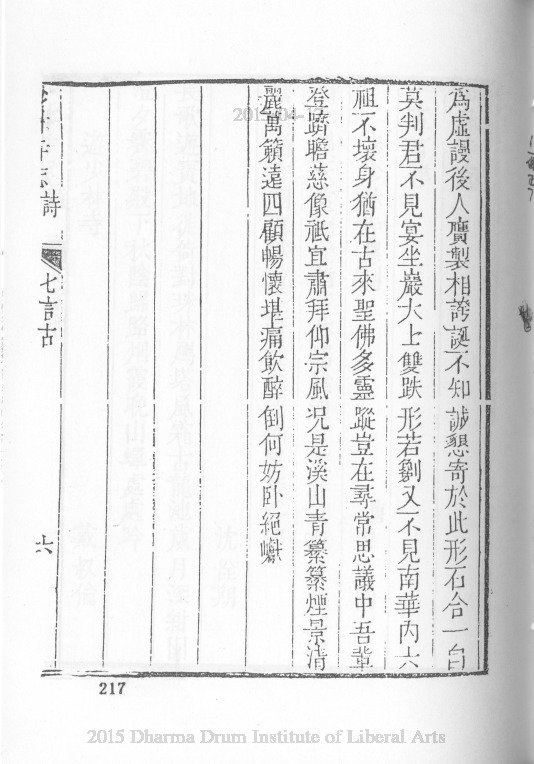 為虛謾後人贗製相誇誕不知誠懇寄於此形石合一自
莫判君不見宴坐巖大上雙跌形若劉又不見南華內六
祖不壞身猶在古來聖佛多靈蹤豈在尋常思議中吾輩
登躋瞻慈像祗宜肅拜仰宗風況是溪山青縈縈煙景清
麗萬籟遠四顧暢懷堪痛飲醉倒何妨卧絕巘
志詩
七言古
六
217
2015 Dharma Drum Institute of Liberal Arts